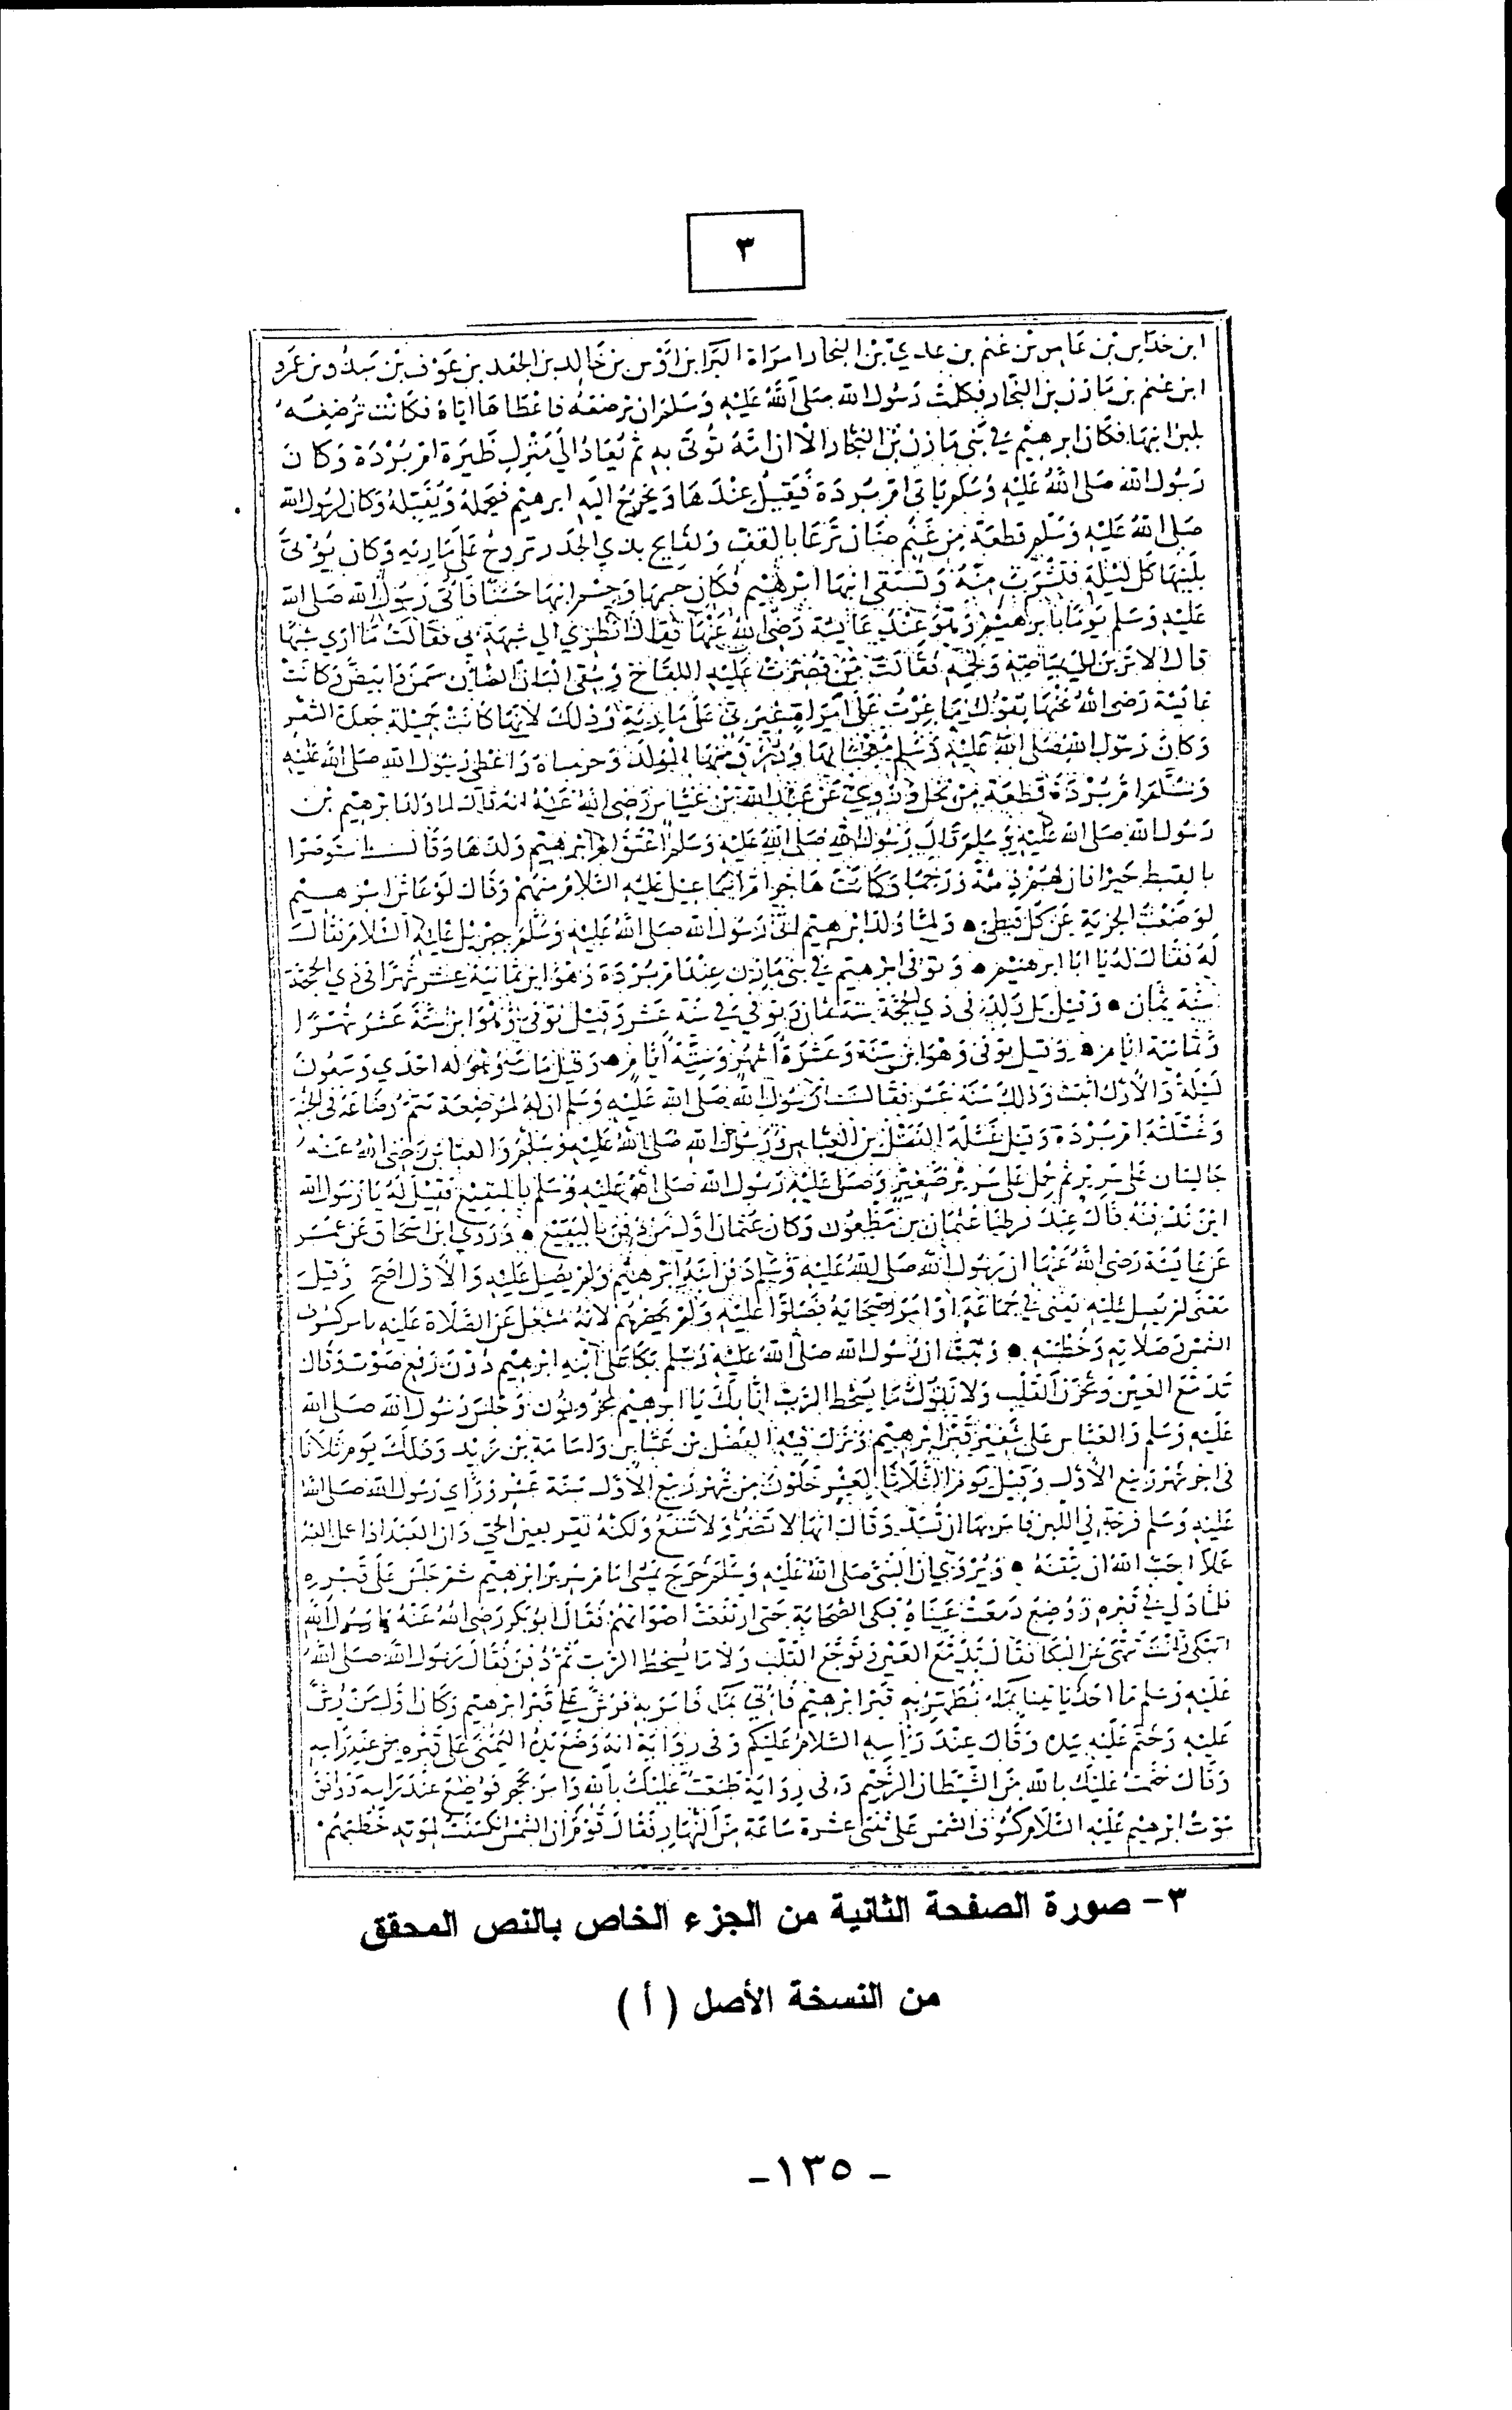 ٣
ابن خداش بن عامر بن غنم بن عدي بن النجار امراة البرا بن اوس بن خالد بن الجعد بن عوف بن مبذول بن عمرو
ابن غنم بن مازن بن النجار فكلمت رسول الله صلى الله عليه وسلم ان ترضعه فاعطاها اياه فكانت ترضعه
بلبن ابنها فكان ابرهيم في بني مازن بن النجار الا ان امه تُوتَى به ثم يعاد الى منزل ظيره ام بردة وكان
رسول الله صلى الله عليه وسلم ياتي ام بردة فيقيل عندها ويخرج اليه ابرهيم فيحمله ويقبله وكان لرسول الله
صلى الله عليه وسلم قطعة من غنم ضان ترعا بالقف ولقايح بذي الجدر تروح على مارية وكان يُوتى
بلبنها كل ليلة فتشرب منه وتسقى ابنها ابرهيم فكان جسمها وجسم ابنها حسنا فاتى رسول الله صلى الله
عليه وسلم يوما بابرهيم وهو عند عايشة رضى الله عنها فقال انظري الى شبهه بي فقالت ما ارى شبها
قال الا ترين الى بياضه ولحمه فقالت من قصرت عليه اللقاح وسُقى البان الضان سمن وابيض وكانت
عائشة رضى الله عنها تقول ما غرت على امراة غيرتى على مارية وذلك لانها كانت جميلة جعدة الشعر
وكان رسول الله صلى الله عليه وسلم معجبا بها ورزق منها الولد وحرمناه واعطى رسول الله صلى الله عليه
وسلم ام بردة قطعة من نخل وروي عن عبد الله بن عباس رضى الله عنه انه قال لما ولد ابرهيم بن
رسول الله صلى الله عليه وسلم قال رسول الله صلى الله عليه وسلم اعتق ام ابرهيم ولدها وقال استوصوا
بالقبط خيرا فان لهم ذمة ورحما وكانت هاجر ام اسماعيل عليه السلام منهم وقال لو عاش ابرهيم
لوضعت الجزية عن كل قبطى ٠ ولما ولد ابرهيم اتى رسول الله صلى الله عليه وسلم جبريل عليه السلام فقال
له فقال له يا ابا ابرهيم ٠ وتوفى ابرهيم في بني مازن عند ام بردة وهو ابن ثمانية عشر شهرا فى ذي الحجة
سنة ثمان ٠ وقيل بل ولد فى ذي الحجة سنة ثمان وتوفي في سنة عشر وقيل توفى وهو ابن ستة عشر شهرا
وثمانية ايام ٠ وقيل توفى وهو ابن سنة وعشرة اشهر وستة ايام ٠ وقيل مات وله احدي وسبعون
ليلة والاول اثبت وذلك سنة عشر فقال رسول الله صلى الله عليه وسلم ان له لمرضعة تتم رضاعه فى الجنة
وغسلته ام بردة وقيل غسله الفضل بن العباس ورسول الله صلى الله عليه وسلم والعباس رضى الله عنه
جالسان على سرير ثم حمل على سرير صغير وصلى عليه رسول الله صلى الله عليه وسلم بالبقيع فقيل له يا رسول الله
اين ندفنه قال عند فرطنا عثمان بن مظعون وكان عثمان اول من دفن بالبقيع ٠ وروي ابن اسحاق عن
عن عايشة رضى الله عنها ان رسول الله صلى الله عليه وسلم دفن ابنه ابرهيم ولم يصل عليه والاول اصح وقيل
معنى لم يصل عليه يعنى في جماعة او امر اصحابه فصلوا عليه ولم يحضرهم لانه مشتغل عن الصلاة عليه بامر كسوف
الشمس وصلاته وخطبته ٠ وثبت ان رسول الله صلى الله عليه وسلم بكا على ابنه ابرهيم دون رفع صوت وقال
تدمع العين ويحزن القلب ولا نقول ما يسخط الرب انا بك يا ابرهيم لمحزونون وجلس رسول الله صلى الله
عليه وسلم والعباس على شفير قبر ابرهيم ونزل فيه الفضل بن عباس واسامة بن زيد وذلك يوم ثلاثا
فى اخر شهر ربيع الاول وقيل يوم الثلاثا لعشر خلون من شهر ربيع الاول سنة عشر وراي رسول الله صلى الله
عليه وسلم فرجة في اللبن فامر بها ان تسد وقال انها لا تضر ولا تنفع ولكنه تقر بعين الحي وان العبد اذا عمل
عملا احب الله ان يتقنه ٠ ويُروي ان النبى صلى الله عليه وسلم خرج يمشى امام سرير ابرهيم ثم جلس على قبره
فلما دُلي في قبره ووضع دمعت عيناه فبكى الصحابة حتى ارتفعت اصواتهم فقال ابو بكر رضى الله عنه يا رسول الله
اتبكى وانت تنهى عن البكا فقال تدمع العين وتوجع القلب ولا ما يسخط الرب ثم دُفن فقال رسول الله صلى الله
عليه وسلم ما احد ياتينا بماء نطهر به قبر ابرهيم فأُتي بماء فامر به فرش على قبر ابرهيم وكان اول من رش
عليه وختم عليه بيده وقال عند راسه السلام عليكم وفى رواية انه وضع يده اليمنى على قبره من عند راسه
وقال ختمت عليك بالله من الشيطان الرجيم وفى رواية طبعت عليك بالله وامر بحجر فوضع عند راسه ووافق
موت ابرهيم عليه السلام كسوف الشمس على ثنتى عشرة ساعة من النهار فقال قوم ان الشمس انكسفت لموته خطبهم
٣- صورة الصفحة الثانية من الجزء الخاص بالنص المحقق
من النسخة الأصل ( أ )
- ١٣٥-